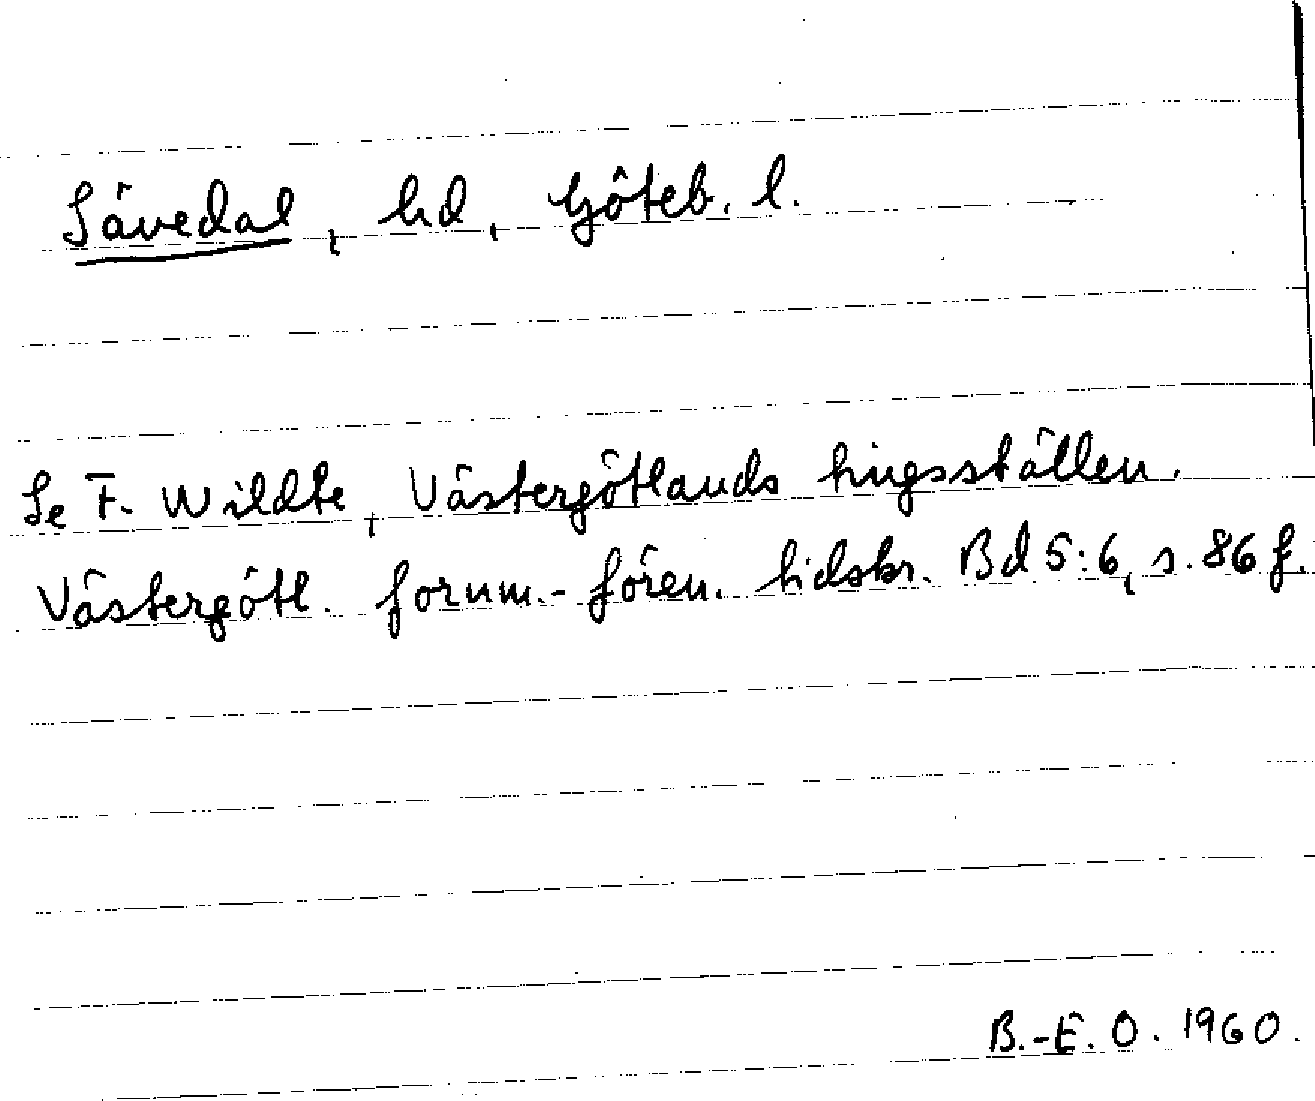 Sävedal, hd, Göteb. l.
Se F. Wildte, Västergötlands tingsställen.
Västergötl. fornm.-fören. tidskr. Bd 5:6, s. 86 f.
B.-E. O. 1960.